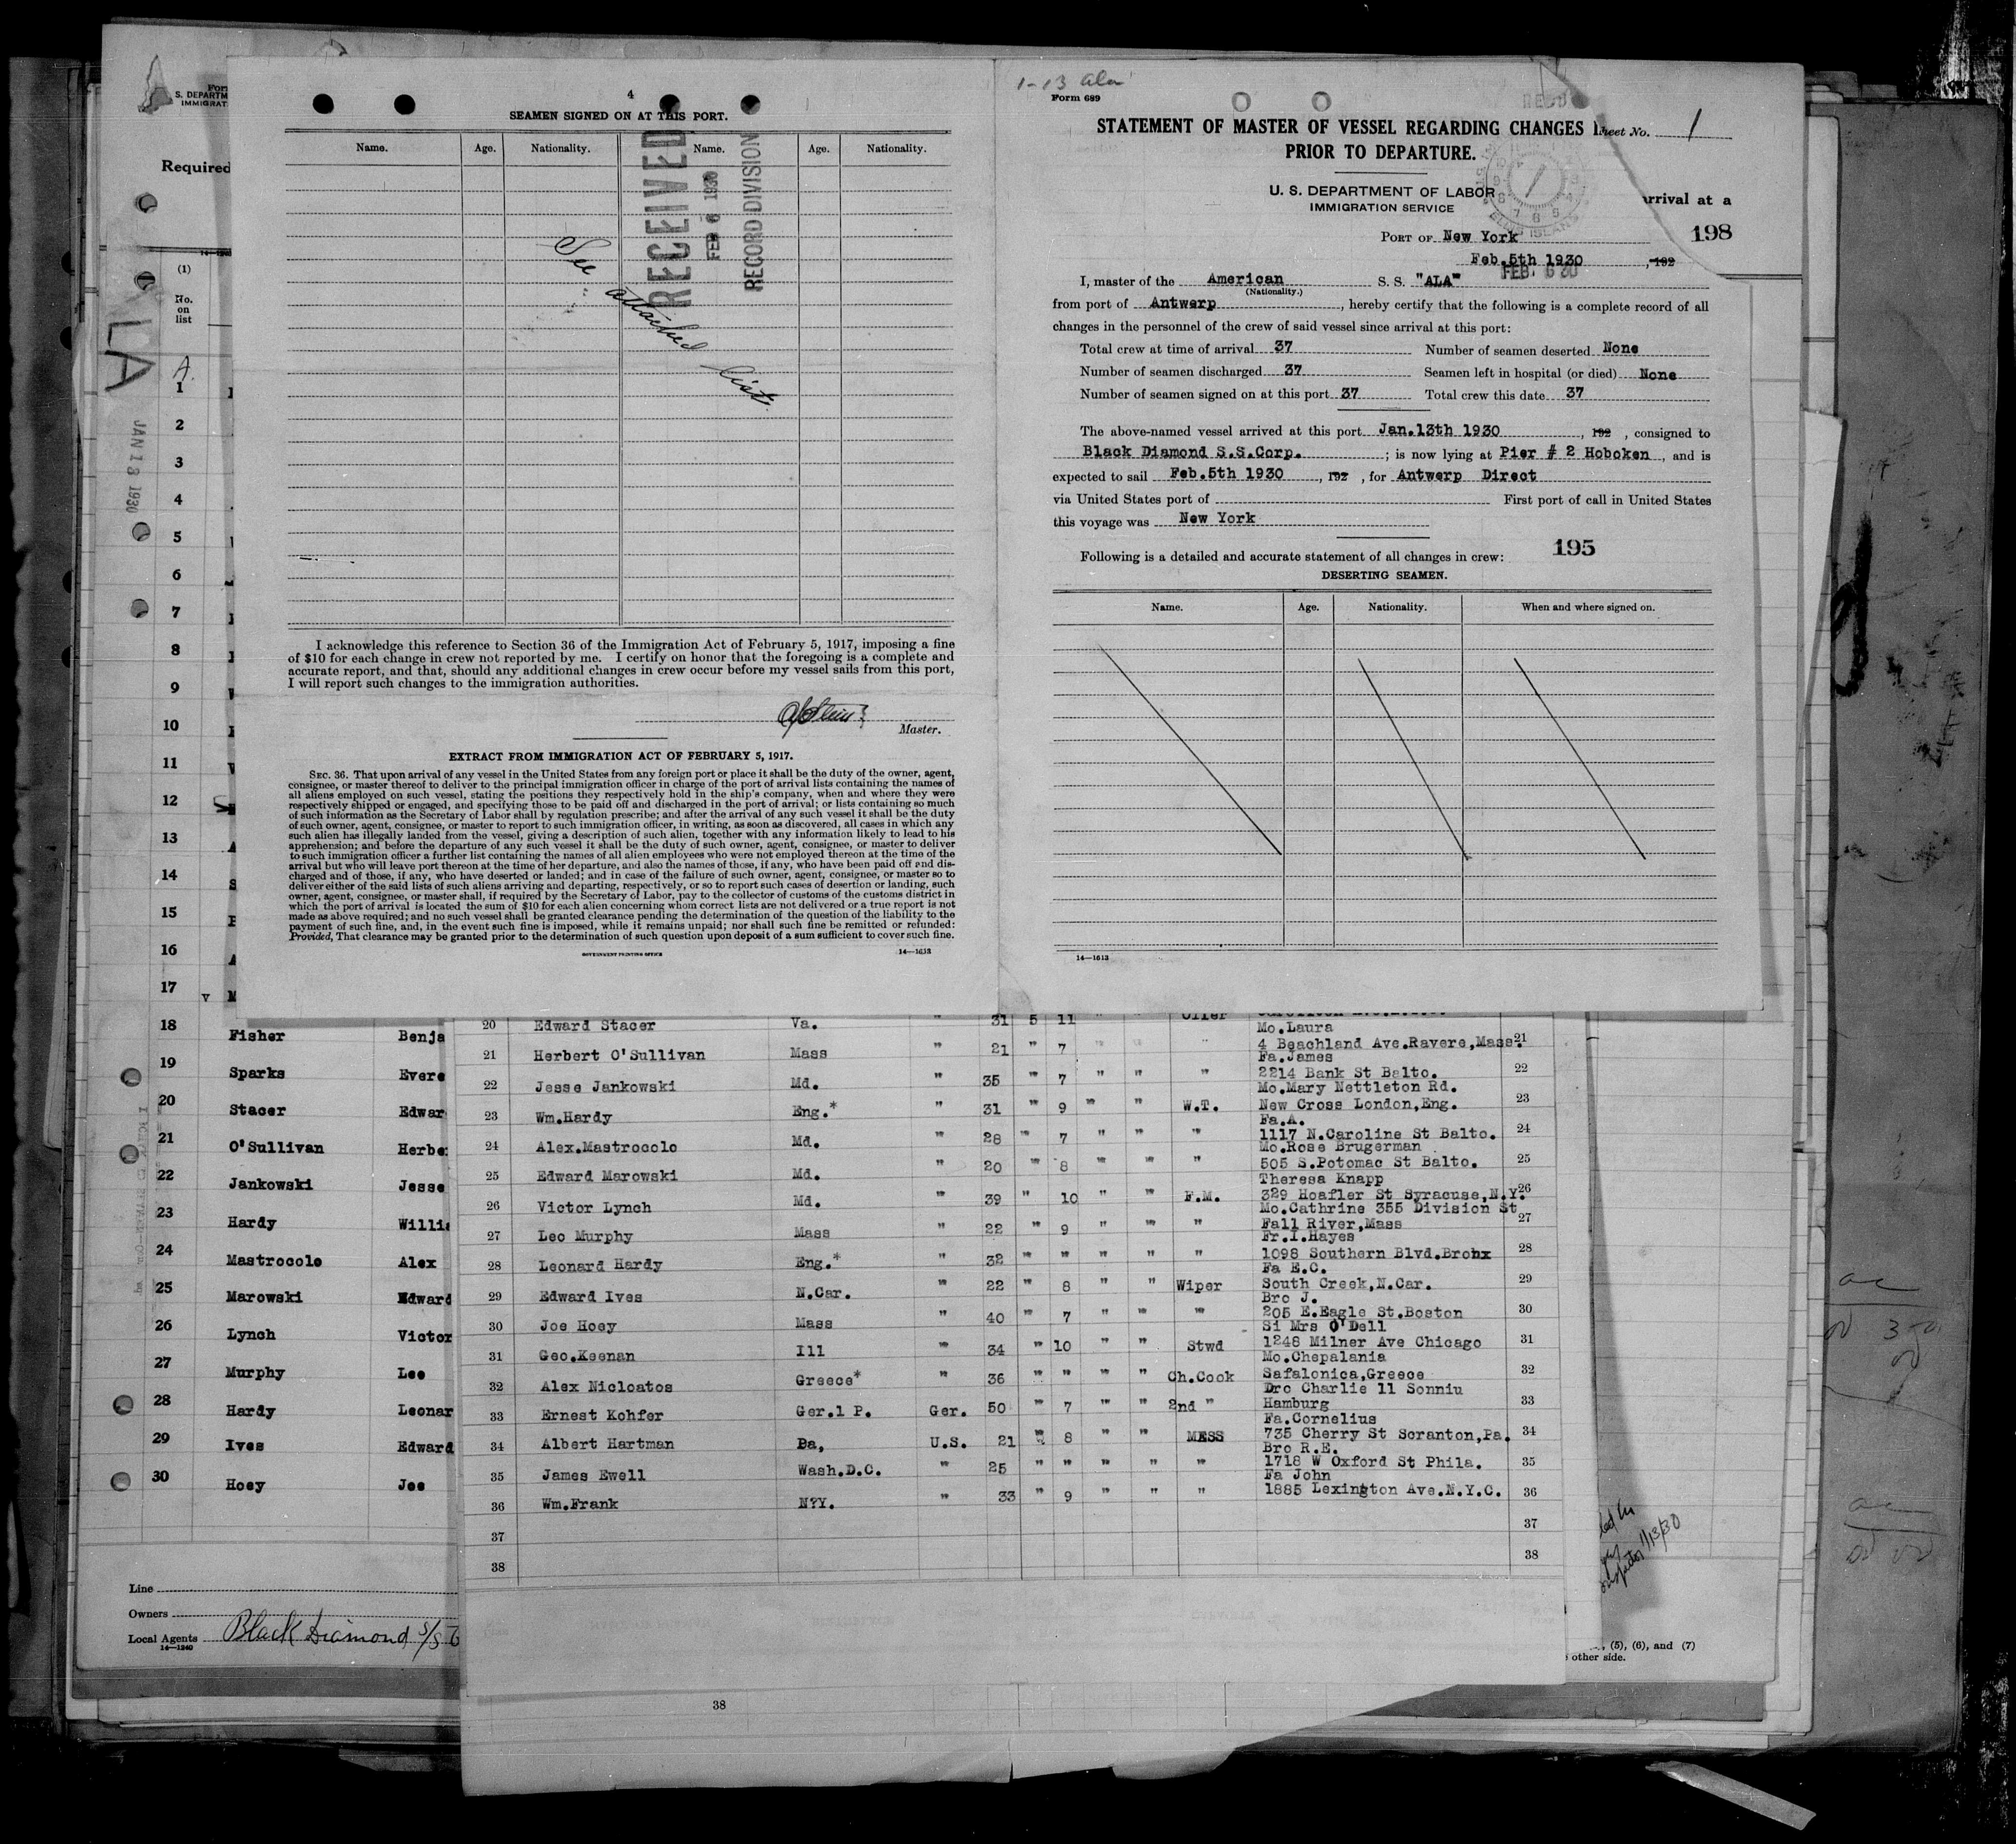 4
SEAMEN SIGNED ON AT THIS PORT.
Name. Age. Nationality. Name. Age. Nationality.
RECEIVED
FEB 6 1930
RECORD DIVISION
See attached list
I acknowledge this reference to Section 36 of the Immigration Act of February 5, 1917, imposing a fine
of $10 for each change in crew not reported by me. I certify on honor that the foregoing is a complete and
accurate report, and that, should any additional changes in crew occur before my vessel sails from this port,
I will report such changes to the immigration authorities.
Master.
EXTRACT FROM IMMIGRATION ACT OF FEBRUARY 5, 1917.
SEC. 36. That upon arrival of any vessel in the United States from any foreign port or place it shall be the duty of the owner, agent,
consignee, or master thereof to deliver to the principal immigration officer in charge of the port of arrival lists containing the names of
all aliens employed on such vessel, stating the positions they respectively hold in the ship's company, when and where they were
respectively shipped or engaged, and specifying those to be paid off and discharged in the port of arrival; or lists containing so much
of such information as the Secretary of Labor shall by regulation prescribe; and after the arrival of any such vessel it shall be the duty
of such owner, agent, consignee, or master to report to such immigration officer, in writing, as soon as discovered, all cases in which any
such alien has illegally landed from the vessel, giving a description of such alien, together with any information likely to lead to his
apprehension; and before the departure of any such vessel it shall be the duty of such owner, agent, consignee, or master to deliver
to such immigration officer a further list containing the names of all alien employees who were not employed thereon at the time of the
arrival but who will leave port thereon at the time of her departure, and also the names of those, if any, who have been paid off and dis-
charged and of those, if any, who have deserted or landed; and in case of the failure of such owner, agent, consignee, or master so to
deliver either of the said lists of such aliens arriving and departing, respectively, or so to report such cases of desertion or landing, such
owner, agent, consignee, or master shall, if required by the Secretary of Labor, pay to the collector of customs of the customs district in
which the port of arrival is located the sum of $10 for each alien concerning whom correct lists are not delivered or a true report is not
made as above required; and no such vessel shall be granted clearance pending the determination of the question of the liability to the
payment of such fine, and, in the event such fine is imposed, while it remains unpaid; nor shall such fine be remitted or refunded:
Provided, That clearance may be granted prior to the determination of such question upon deposit of a sum sufficient to cover such fine.
GOVERNMENT PRINTING OFFICE 14—1613
1-13 Ala
Form 689
STATEMENT OF MASTER OF VESSEL REGARDING CHANGES
PRIOR TO DEPARTURE.
U. S. DEPARTMENT OF LABOR
IMMIGRATION SERVICE
PORT OF New York
Feb.5th 1930 , 192
FEB. 6 30
I, master of the American S. S. "ALA"
(Nationality.)
from port of Antwerp , hereby certify that the following is a complete record of all
changes in the personnel of the crew of said vessel since arrival at this port:
Total crew at time of arrival 37 Number of seamen deserted None
Number of seamen discharged 37 Seamen left in hospital (or died) None
Number of seamen signed on at this port 37 Total crew this date 37
The above-named vessel arrived at this port Jan.13th 1930 , 192 , consigned to
Black Diamond S.S.Corp. ; is now lying at Pier # 2 Hoboken , and is
expected to sail Feb.5th 1930 , 192 , for Antwerp Direct
via United States port of First port of call in United States
this voyage was New York
195
Following is a detailed and accurate statement of all changes in crew:
DESERTING SEAMEN.
Name. Age. Nationality. When and where signed on.
14—1613
Sheet No. 1
arrival at a
198
S. DEPARTM
IMMIGRAT
Required
(1)
No.
on
list
LA
JAN 13 1930
A.
1
2
3
4
5
6
7
8
9
10
11
12
13
14
15
16
17 v
18 Fisher Benja
19 Sparks Evere
20 Stacer Edwar
21 O'Sullivan Herbe
22 Jankowski Jesse
23 Hardy Willi
24 Mastrocolo Alex
25 Marowski Edward
26 Lynch Victor
27 Murphy Leo
28 Hardy Leonar
29 Ives Edward
30 Hoey Joe
Line
Owners
Local Agents Black Diamond S/S
14—1240
20 Edward Stacer Va. " 31 5 11 Oiler
Mo.Laura
21 Herbert O'Sullivan Mass " 21 " 7 " " " 4 Beachland Ave.Ravere,Mass. 21
Fa.James
22 Jesse Jankowski Md. " 35 " 7 " " " 2214 Bank St Balto. 22
Mo.Mary Nettleton Rd.
23 Wm.Hardy Eng.* " 31 " 9 " " W.T. New Cross London,Eng. 23
Fa.A.
24 Alex.Mastrocolo Md. " 28 " 7 " " " 1117 N.Caroline St Balto. 24
Mo.Rose Brugerman
25 Edward Marowski Md. " 20 " 8 " " " 505 S.Potomac St Balto. 25
Theresa Knapp
26 Victor Lynch Md. " 39 " 10 " " F.M. 329 Hoafler St Syracuse,N.Y. 26
Mo.Cathrine 355 Division St
27 Leo Murphy Mass " 22 " 9 " " " Fall River,Mass 27
Fr.I.Hayes
28 Leonard Hardy Eng.* " 32 " " " " " 1098 Southern Blvd.Bronx 28
Fa E.C.
29 Edward Ives N.Car. " 22 " 8 " " Wiper South Creek,N.Car. 29
Bro J.
30 Joe Hoey Mass " 40 " 7 " " " 205 E.Eagle St.Boston 30
Si Mrs O'Dell
31 Geo.Keenan Ill " 34 " 10 " " Stwd 1248 Milner Ave Chicago 31
Mo.Chepalania
32 Alex Nicloatos Greece* " 36 " " " " Ch.Cook Safalonica,Greece 32
Bro Charlie 11 Sonniu
33 Ernest Kohfer Ger.1 P. Ger. 50 " 7 " " 2nd " Hamburg 33
Fa.Cornelius
34 Albert Hartman Pa, U.S. 21 " 8 " " MESS 735 Cherry St Scranton,Pa. 34
Bro R.E.
35 James Ewell Wash.D.C. " 25 " " " " " 1718 W Oxford St Phila. 35
Fa John
36 Wm.Frank N?Y. " 33 " 9 " " " 1885 Lexington Ave.N.Y.C. 36
37 37
38 38
1/13/30
, (5), (6), and (7)
other side.
38